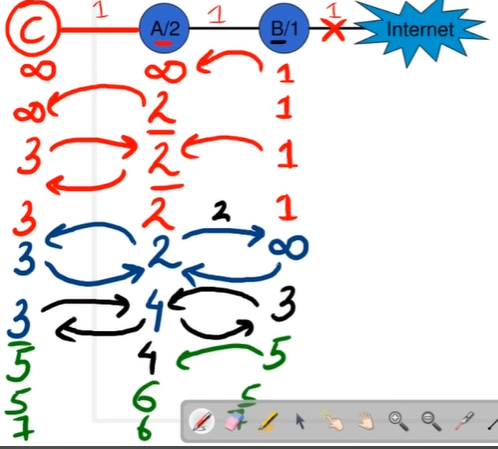 1 1 1
C A/2 B/1 Internet
∞ ∞ 1
∞ 2 1
3 2 1
3 2 1
2
3 2 ∞
3 4 3
5 4 5
5 6 5
7 6